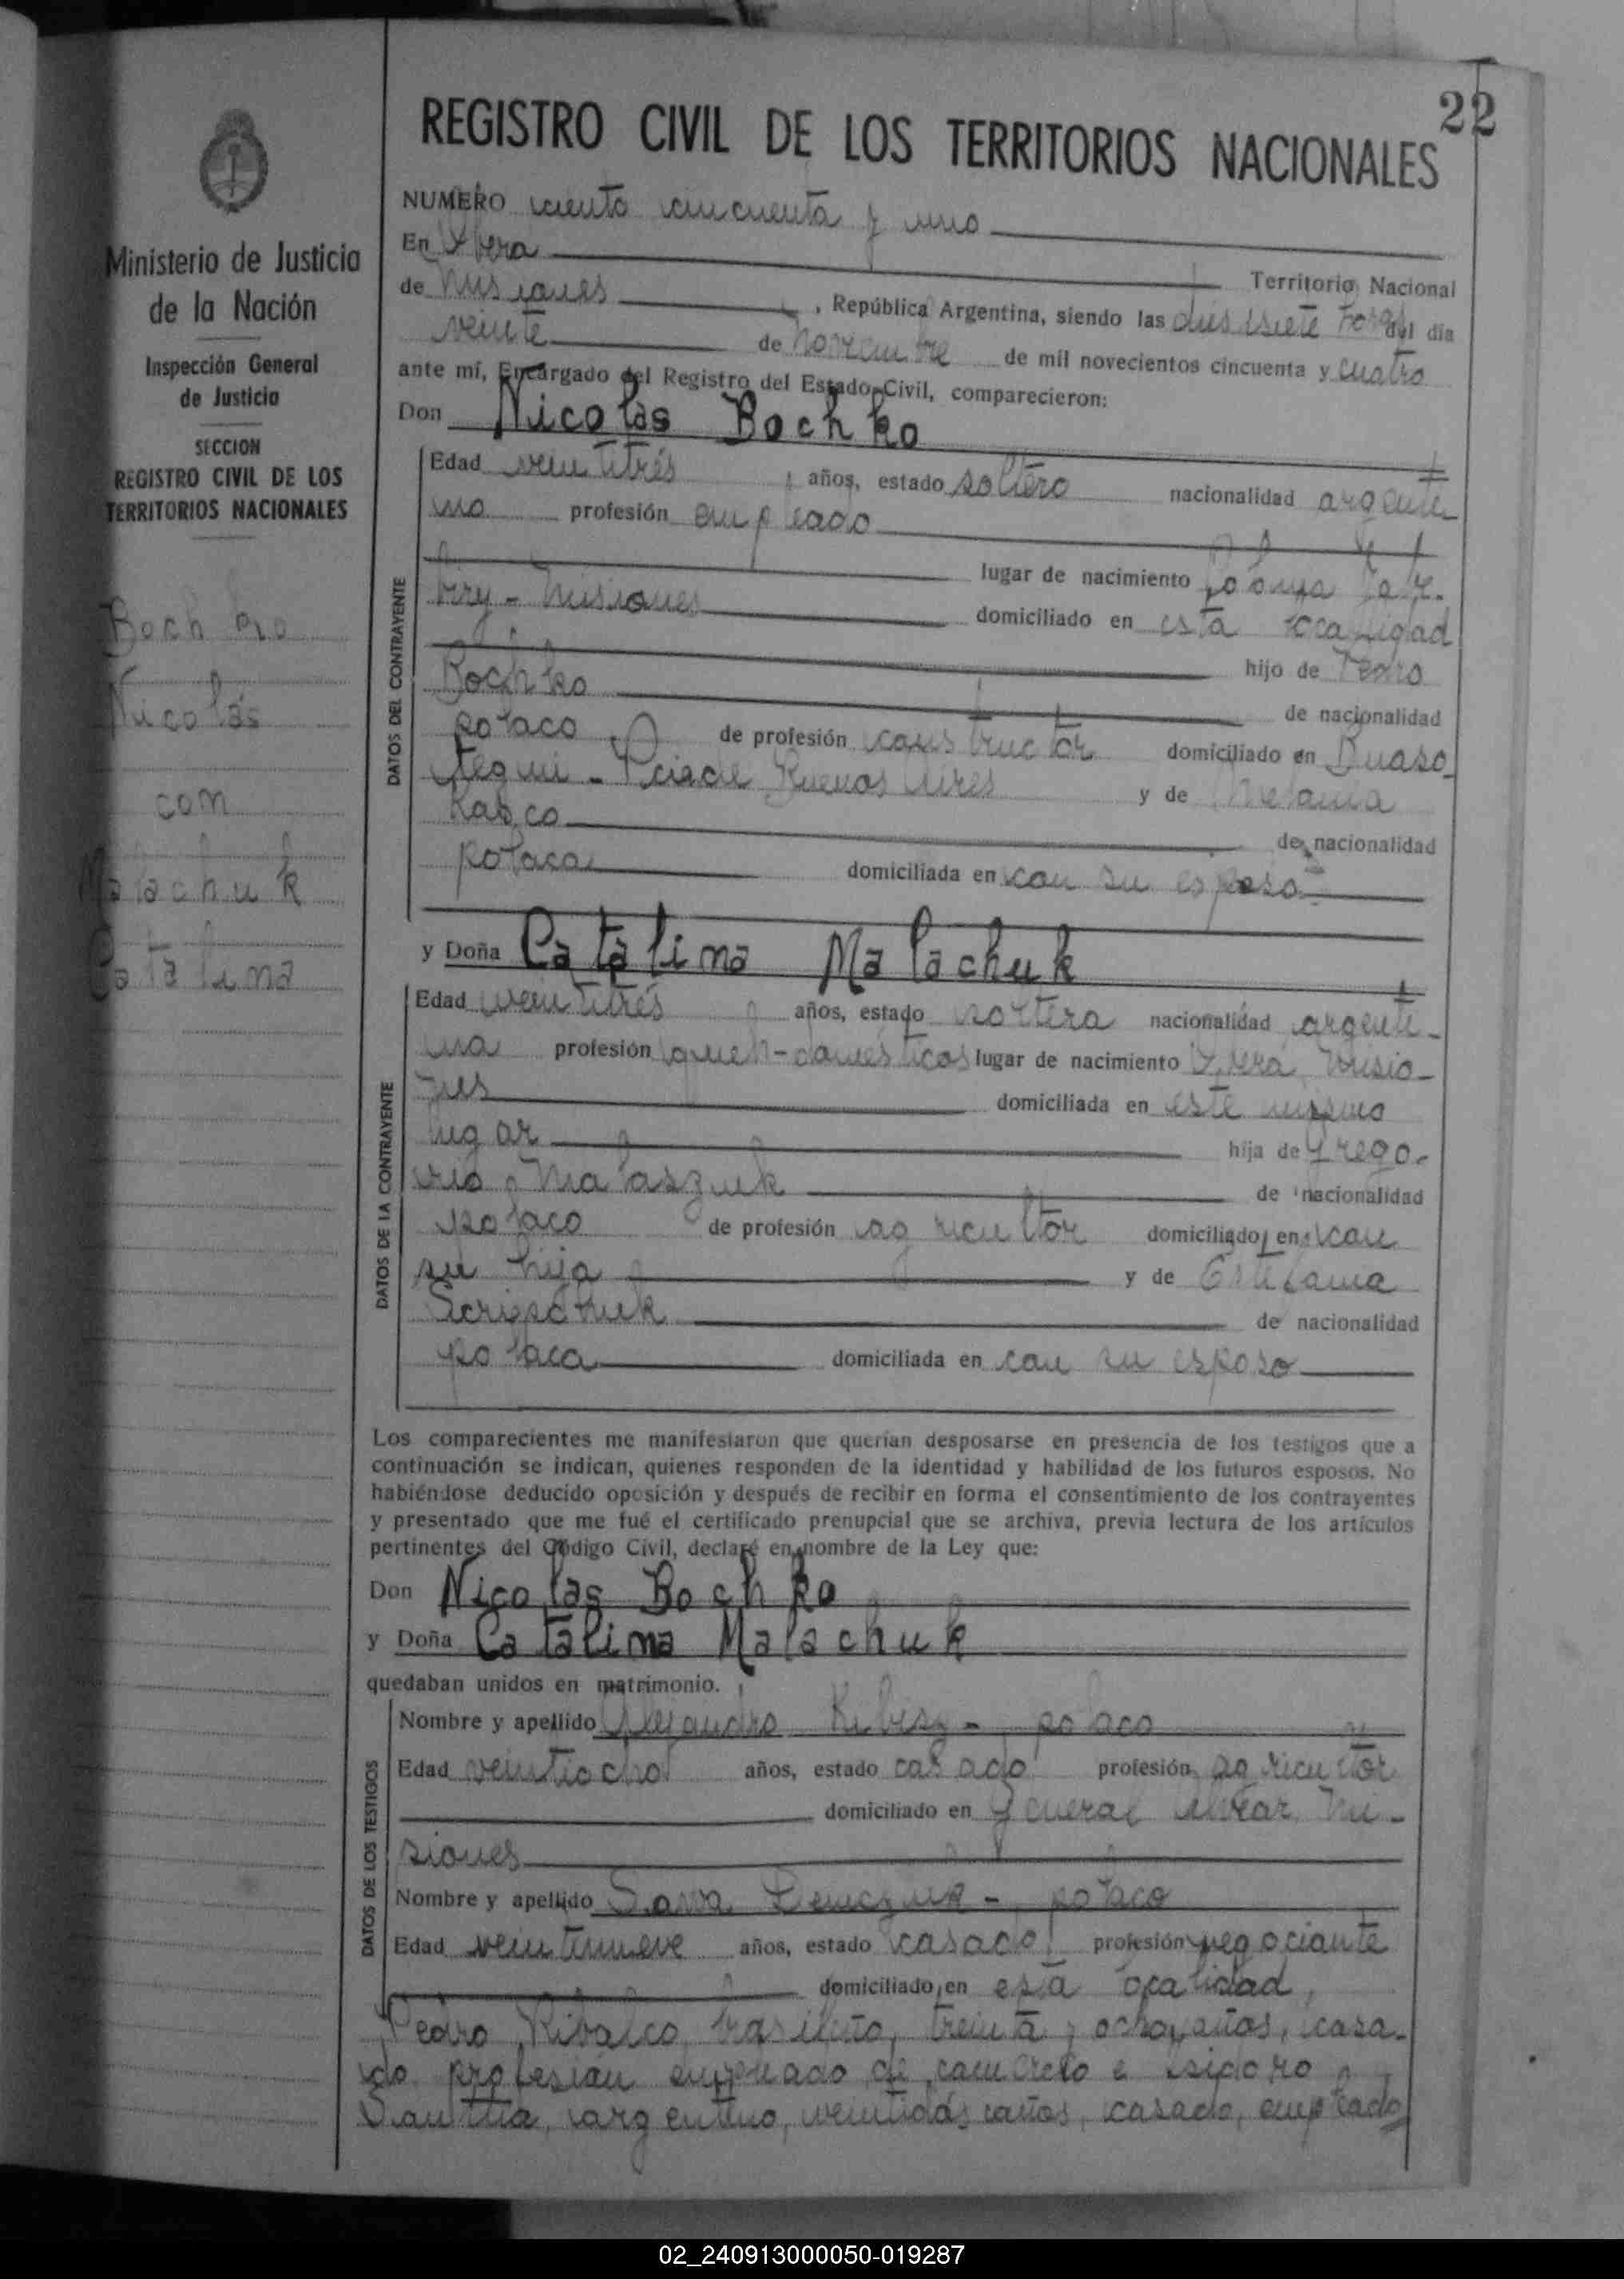 22
REGISTRO CIVIL DE LOS TERRITORIOS NACIONALES
Ministerio de Justicia
de la Nación
Inspección General
de Justicia
SECCION
REGISTRO CIVIL DE LOS
TERRITORIOS NACIONALES
Boch ko
Nicolás
con
Malachuk
Catalina
NUMERO ciento cincuenta y uno
En Obera Territorio Nacional
de Misiones , República Argentina, siendo las dies isiete horas del día
veinte de noviembre de mil novecientos cincuenta y cuatro
ante mí, Encargado del Registro del Estado Civil, comparecieron:
Don Nicolas Bochko
DATOS DEL CONTRAYENTE
Edad veintitrés años, estado soltero nacionalidad argenti
no profesión empleado
lugar de nacimiento
Misiones domiciliado en esta localidad
hijo de Pedro
Bochko de nacionalidad
polaco de profesión constructor domiciliado en
Pcia de Buenos Aires y de Melania
de nacionalidad
polaca domiciliada en con su esposo
y Doña Catalina Malachuk
DATOS DE LA CONTRAYENTE
Edad veintitrés años, estado soltera nacionalidad argenti-
na profesión queh-domésticos lugar de nacimiento Obera Misio-
nes domiciliada en este mismo
lugar hija de Grego-
rio Malaszuk de nacionalidad
polaco de profesión agricultor domiciliado en con
su hija y de Estefania
de nacionalidad
polaca domiciliada en con su esposo
Los comparecientes me manifestaron que querían desposarse en presencia de los testigos que a
continuación se indican, quienes responden de la identidad y habilidad de los futuros esposos. No
habiéndose deducido oposición y después de recibir en forma el consentimiento de los contrayentes
y presentado que me fué el certificado prenupcial que se archiva, previa lectura de los artículos
pertinentes del Código Civil, declaré en nombre de la Ley que:
Don Nicolas Bochko
y Doña Catalina Malachuk
quedaban unidos en matrimonio.
DATOS DE LOS TESTIGOS
Nombre y apellido Alejandro Kibisz - polaco
Edad veintiocho años, estado casado profesión agricultor
domiciliado en General Alvear Mi-
siones
Nombre y apellido Sawa - polaco
Edad veintinueve años, estado casado profesión negociante
domiciliado en esta localidad,
Pedro brasileño, treinta y ocho años, casa-
do profesión empleado de comercio e Isidoro
argentino, veintidós años, casado, empleado
02_240913000050-019287